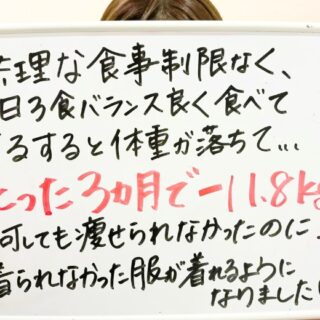 無理な食事制限なく、
日3食バランス良く食べて
するすると体重が落ちて...
たった3ヵ月で-11.8kg
何しても痩せられなかったのに、
着られなかった服が着れるように
なりました!